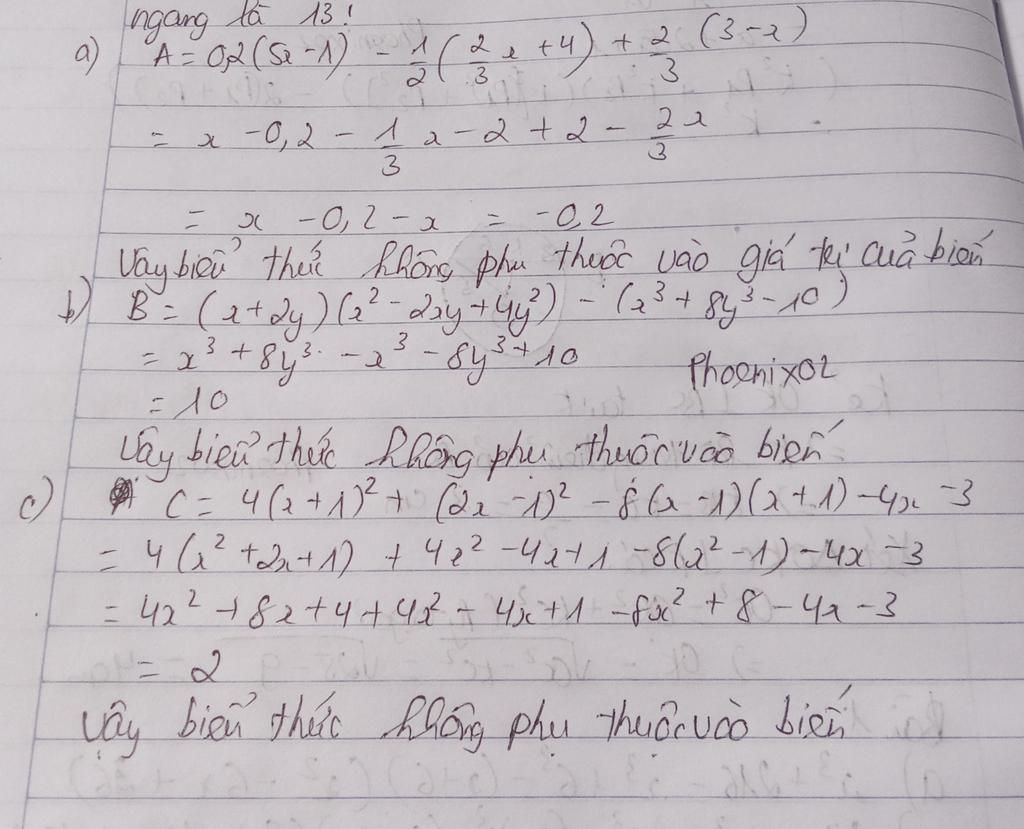 ngang là 13!
a) A = 0,2(5x-1) - 1/2(2/3x + 4) + 2/3(3-x)
= x - 0,2 - 1/3x - 2 + 2 - 2/3x
= x - 0,2 - x = -0,2
Vậy biểu thức không phụ thuộc vào giá trị của biến
b) B = (x+2y)(x² - 2xy + 4y²) - (x³ + 8y³ - 10)
= x³ + 8y³ - x³ - 8y³ + 10
Phoenix02
= 10
Vậy biểu thức không phụ thuộc vào biến
c) C = 4(x+1)² + (2x - 1)² - 8(x - 1)(x + 1) - 4x - 3
= 4(x² + 2x + 1) + 4x² - 4x + 1 - 8(x² - 1) - 4x - 3
= 4x² + 8x + 4 + 4x² - 4x + 1 - 8x² + 8 - 4x - 3
= 2
Vậy biểu thức không phụ thuộc vào biến